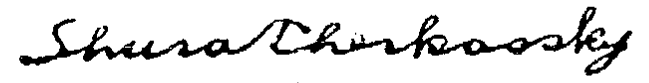 Shura Cherkassky